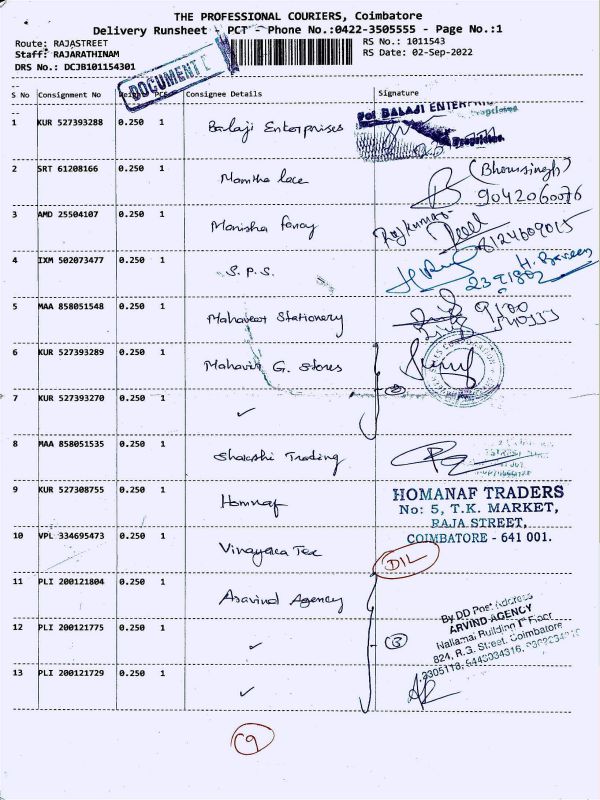 THE PROFESSIONAL COURIERS, Coimbatore
Delivery Runsheet - PCT - Phone No.:0422-3505555 - Page No.:1
Route: RAJASTREET RS No.: 1011543
Staff: RAJARATHINAM RS Date: 02-Sep-2022
DRS No.: DCJB101154301
DOCUMENT
S No Consignment No Weight PCS Consignee Details Signature
1 KUR 527393288 0.250 1 Balaji Enterprises
For BALAJI ENTERPRIS
Proprietor.
2 SRT 61208166 0.250 1 Mamtha lace (Bhomsingh)
9042060076
3 AMD 25504107 0.250 1 Manisha fancy Rajkumar
8124609015
4 IXM 502073477 0.250 1 S.P.S.
5 MAA 858051548 0.250 1 Mahaveer Stationery
6 KUR 527393289 0.250 1 Mahavir G. Stores
7 KUR 527393270 0.250 1 ✓
8 MAA 858051535 0.250 1 Shakshi Trading
9 KUR 527308755 0.250 1 Homnaf
HOMANAF TRADERS
No: 5, T.K. MARKET,
RAJA STREET,
COIMBATORE - 641 001.
10 VPL 334695473 0.250 1 Vinayaka Tex
D/L
11 PLI 200121804 0.250 1 Aravind Agency
12 PLI 200121775 0.250 1 ✓ 3
13 PLI 200121729 0.250 1 ✓
By DD Post Address
ARVIND AGENCY
Nallamai Building 1st Floor
824, R.G. Street, Coimbatore